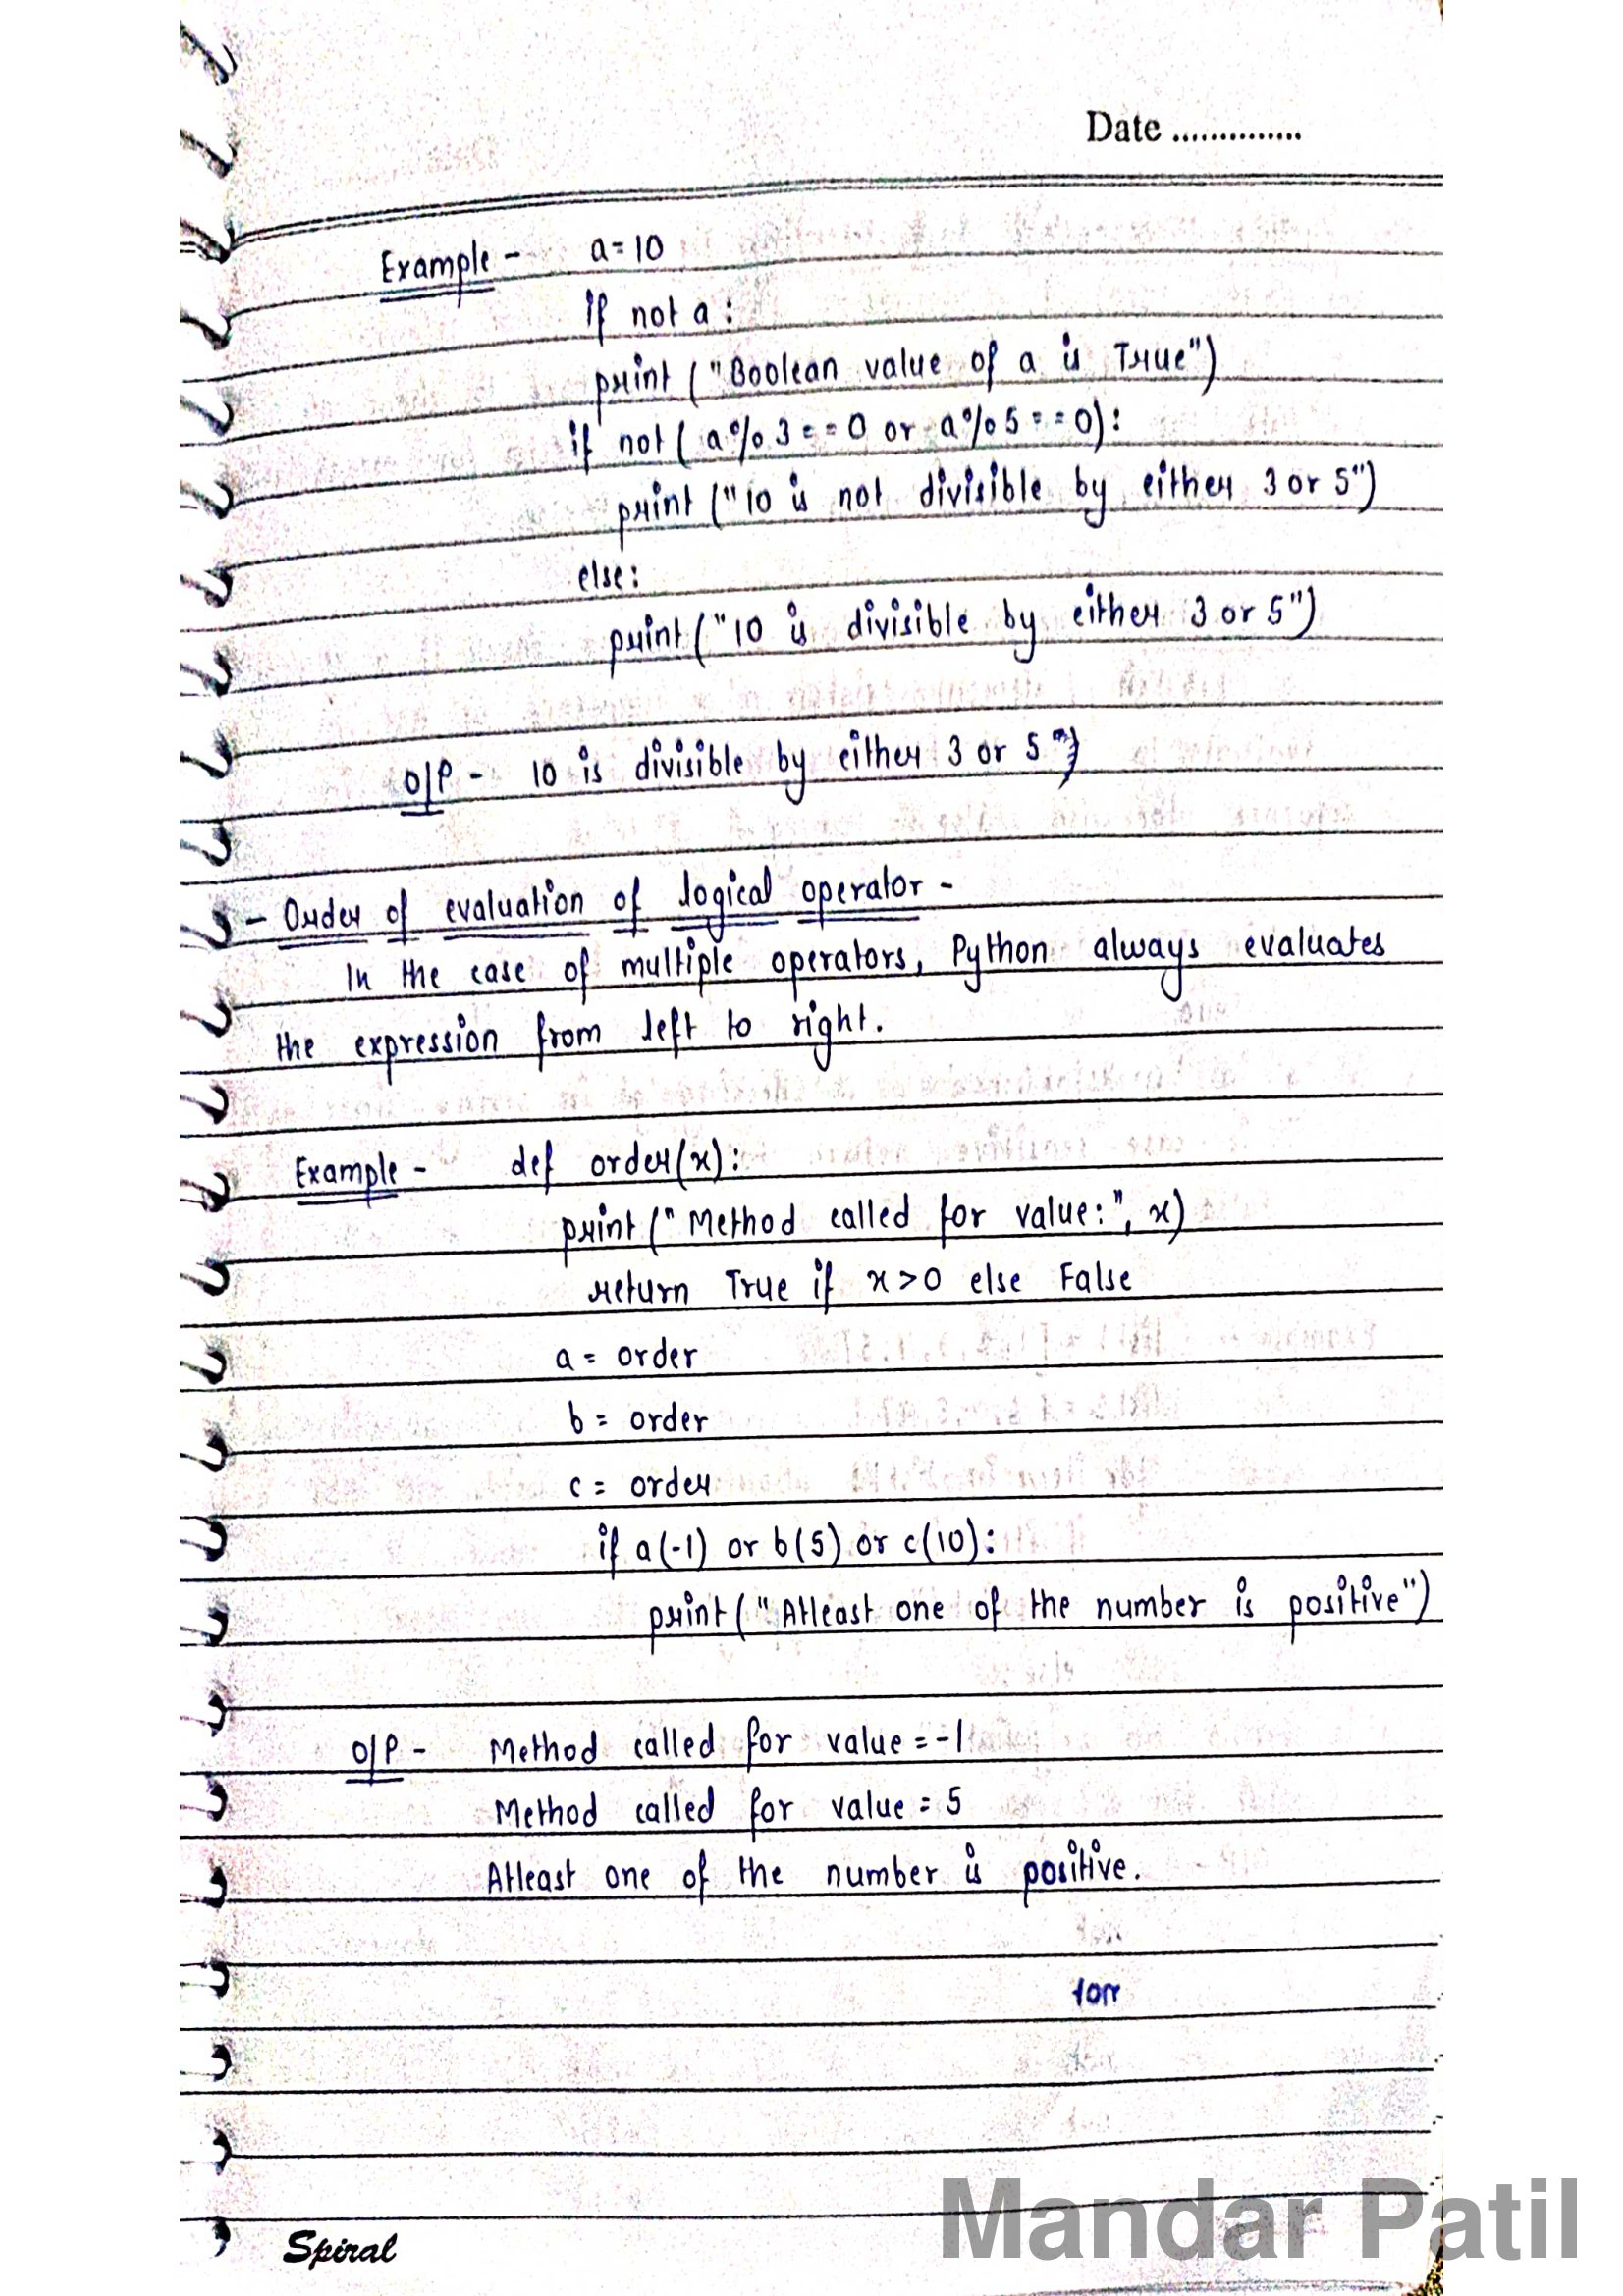 Date ..............
Example - a=10
If not a :
print ("Boolean value of a is True")
if not ( a%3 == 0 or a%5 == 0):
print ("10 is not divisible by either 3 or 5")
else:
print ("10 is divisible by either 3 or 5")
O/P - 10 is divisible by either 3 or 5
- Order of evaluation of logical operator -
In the case of multiple operators, Python always evaluates
the expression from left to right.
Example - def order(x):
print (" Method called for value:", x)
return True if x>0 else False
a = order
b = order
c = order
if a(-1) or b(5) or c(10):
print (" Atleast one of the number is positive")
O/P - Method called for value = -1
Method called for value = 5
Atleast one of the number is positive.
Spiral
Mandar Patil